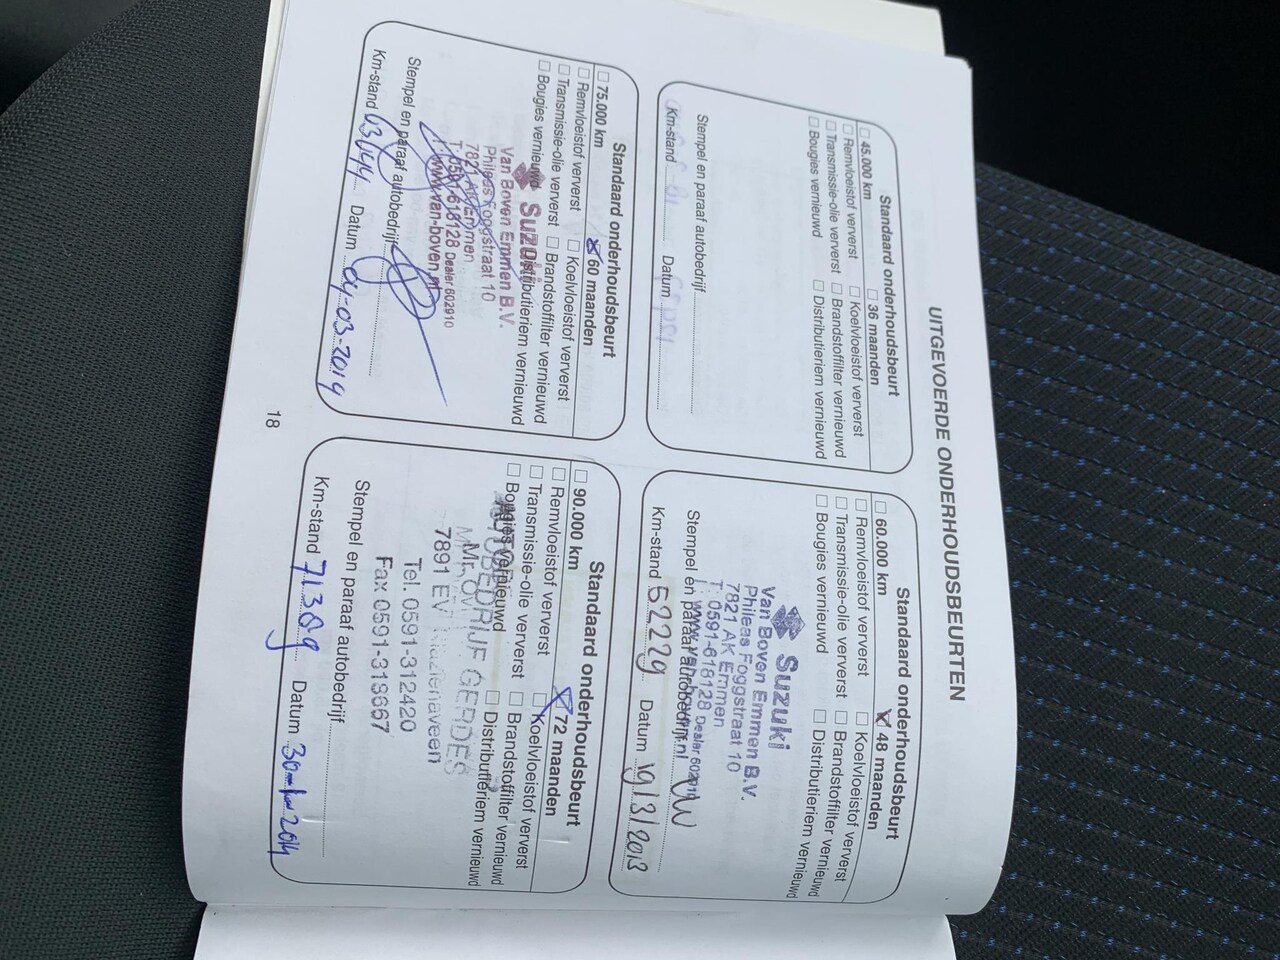 UITGEVOERDE ONDERHOUDSBEURTEN
Standaard onderhoudsbeurt
45.000 km
36 maanden
Remvloeistof ververst
Koelvloeistof ververst
Transmissie-olie ververst
Brandstoffilter vernieuwd
Bougies vernieuwd
Distributieriem vernieuwd
Stempel en paraaf autobedrijf
Km-stand
Datum
Standaard onderhoudsbeurt
60.000 km
X 48 maanden
Remvloeistof ververst
Koelvloeistof ververst
Transmissie-olie ververst
Brandstoffilter vernieuwd
Bougies vernieuwd
Distributieriem vernieuwd
Suzuki
Van Boven Emmen B.V.
Phileas Foggstraat 10
7821 AK Emmen
T: 0591-618128 Dealer 602910
Stempel en paraaf autobedrijf
Km-stand 52229 Datum 19/3/2013
Standaard onderhoudsbeurt
75.000 km
X 60 maanden
Remvloeistof ververst
Koelvloeistof ververst
Transmissie-olie ververst
Brandstoffilter vernieuwd
Bougies vernieuwd
Distributieriem vernieuwd
Suzuki
Van Boven Emmen B.V.
Phileas Foggstraat 10
7821 AK Emmen
T: 0591-618128 Dealer 602910
www.van-boven.nl
Stempel en paraaf autobedrijf
Km-stand 63144 Datum
Standaard onderhoudsbeurt
90.000 km
X 72 maanden
Remvloeistof ververst
Koelvloeistof ververst
Transmissie-olie ververst
Brandstoffilter vernieuwd
Bougies vernieuwd
Distributieriem vernieuwd
AUTOBEDRIJF GERDES
7891 EV Klazienaveen
Tel. 0591-312420
Fax 0591-318667
Stempel en paraaf autobedrijf
Km-stand 71309 Datum
18